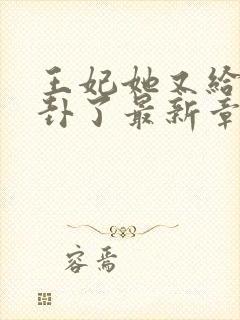 王妃她又给
卦了最新章
容焉